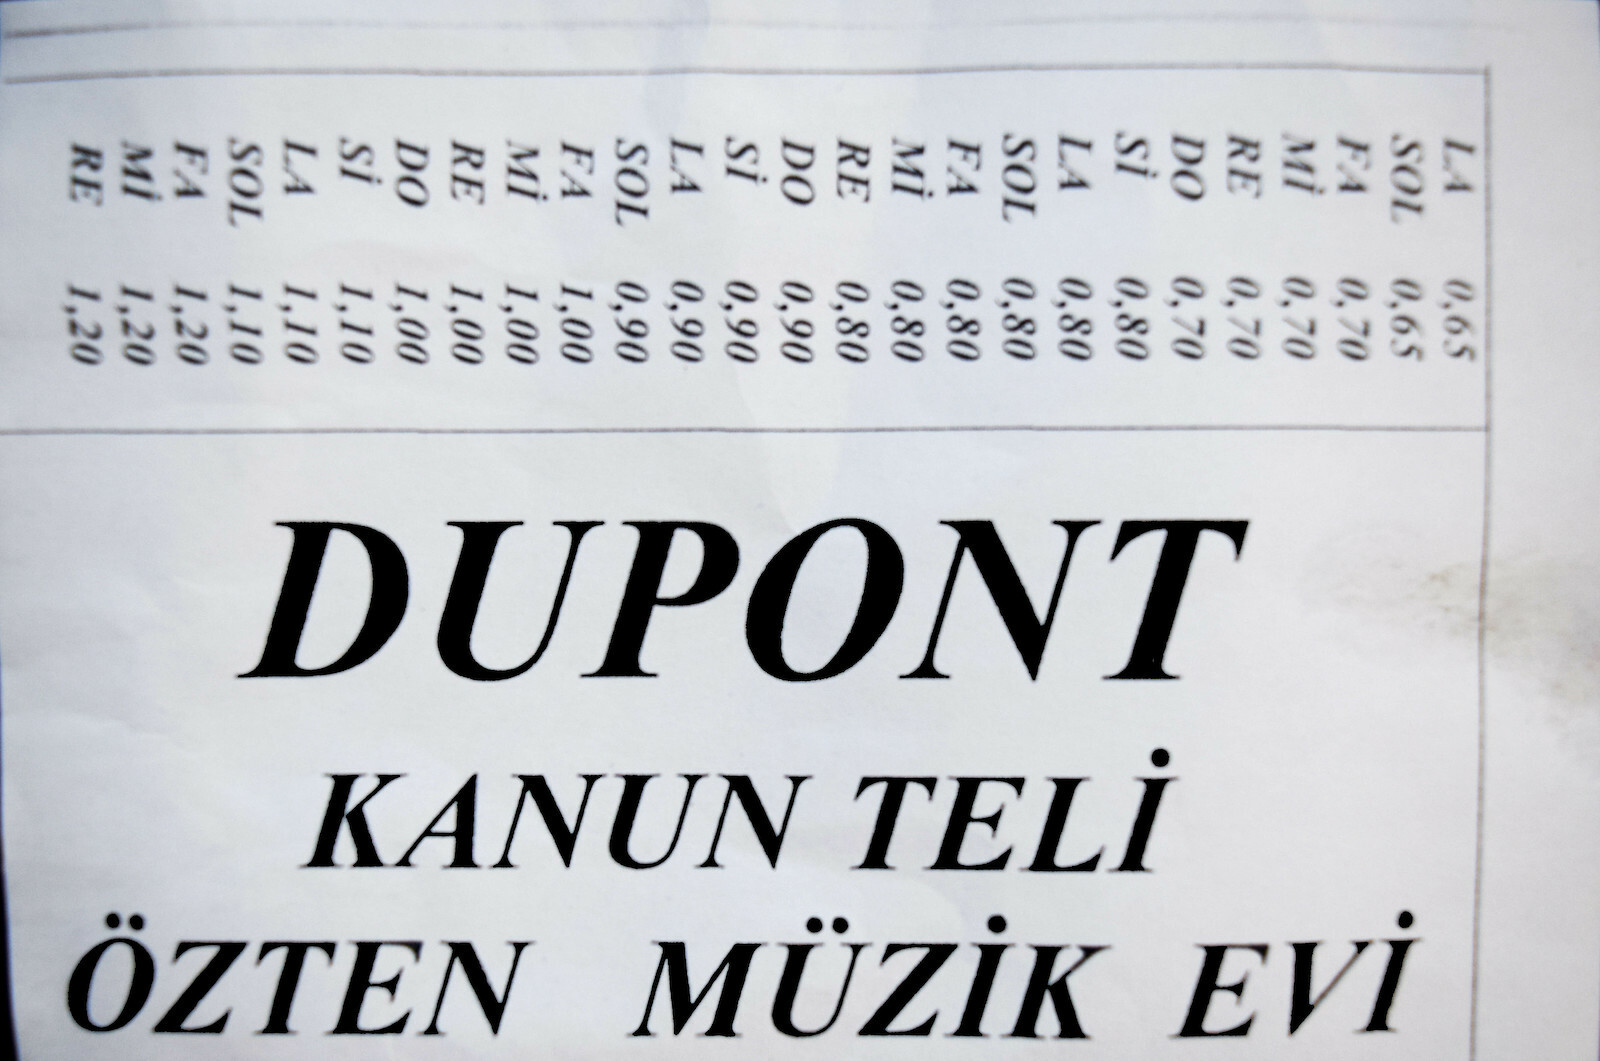 LA 0,65
SOL 0,65
FA 0,70
Mİ 0,70
RE 0,70
DO 0,70
Sİ 0,80
LA 0,80
SOL 0,80
FA 0,80
Mİ 0,80
RE 0,80
DO 0,90
Sİ 0,90
LA 0,90
SOL 0,90
FA 1,00
Mİ 1,00
RE 1,00
DO 1,00
Sİ 1,10
LA 1,10
SOL 1,10
FA 1,20
Mİ 1,20
RE 1,20
DUPONT
KANUN TELİ
ÖZTEN MÜZİK EVİ